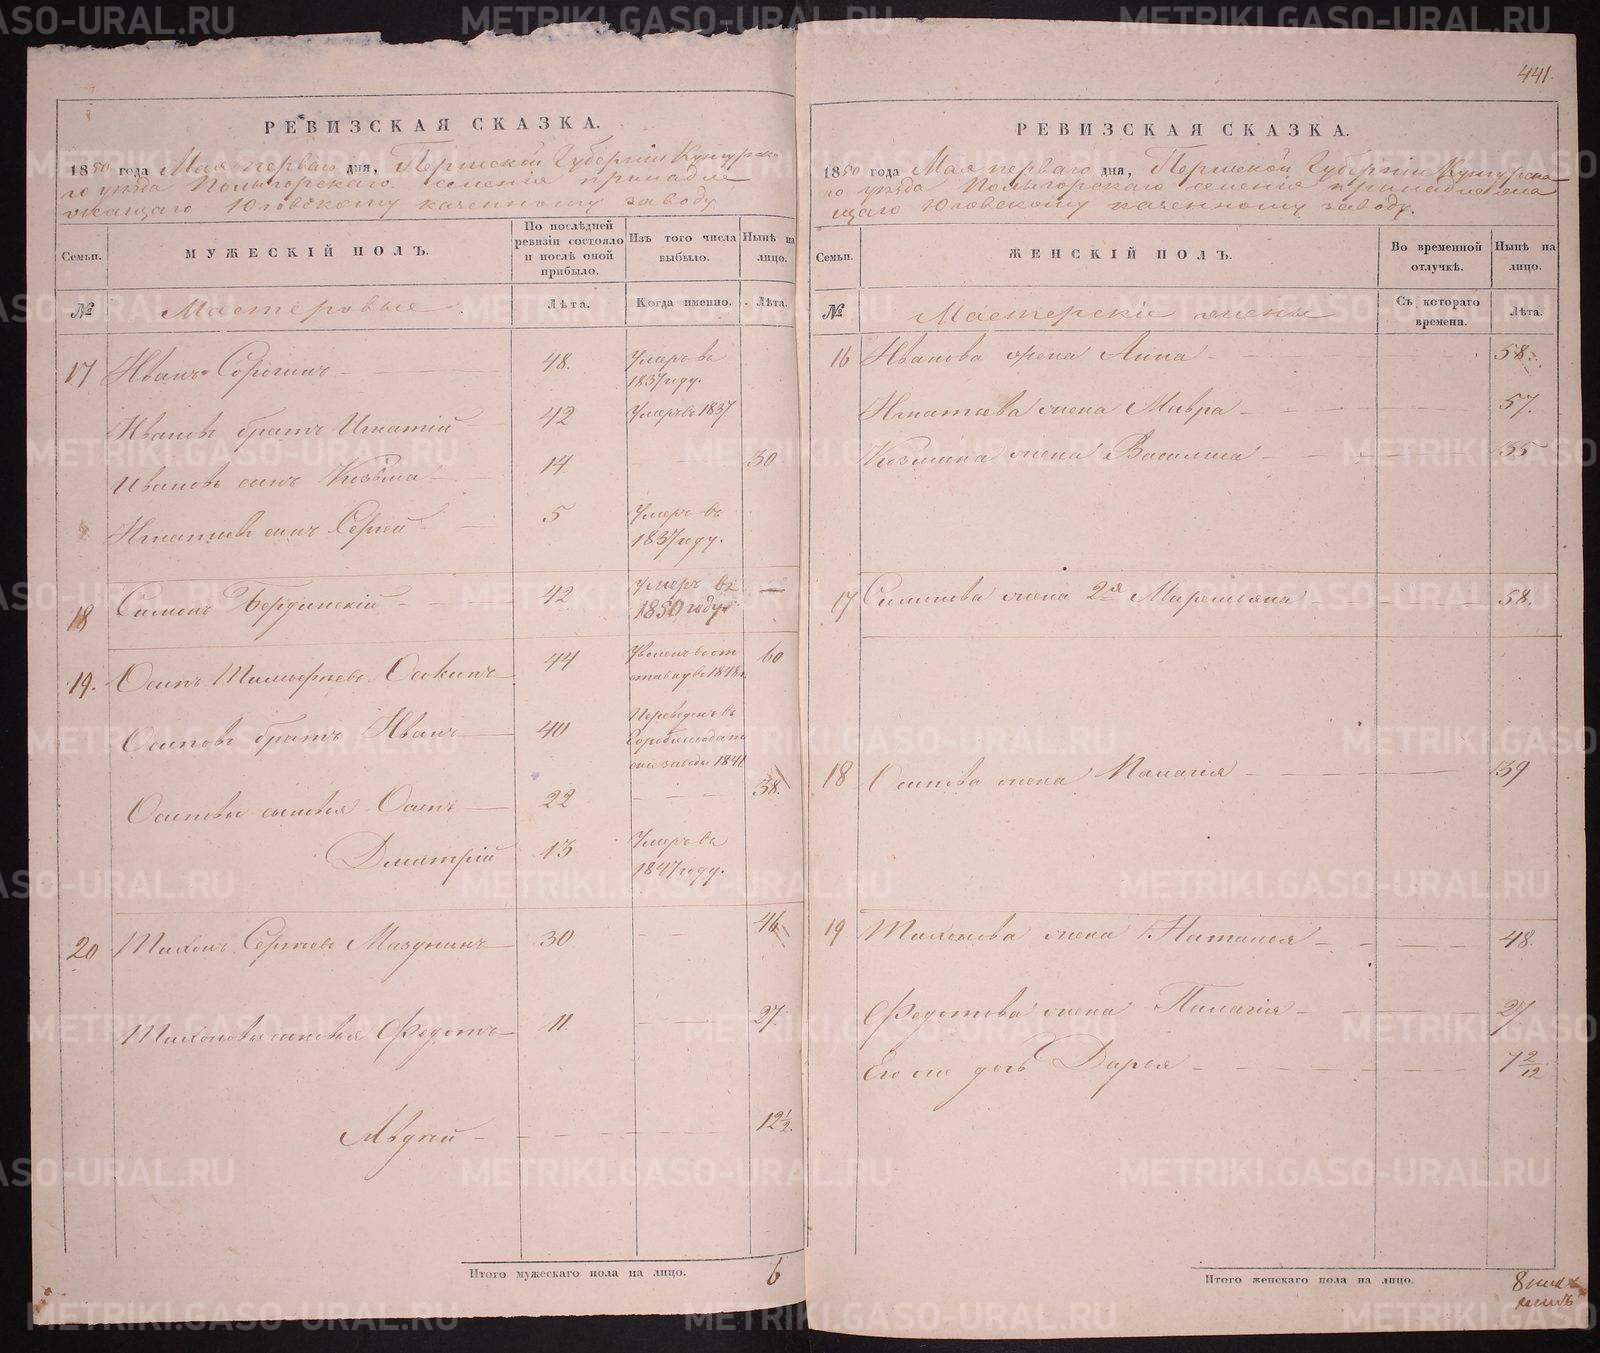 РЕВИЗСКАЯ СКАЗКА.
1850 года Мая перваго дня, Пермской Губерніи Кунгурска-
го уѣзда селенія принадле
жащаго Юговскому казенному заводу
Семьи.
МУЖЕСКІЙ ПОЛЪ.
По послѣдней
ревизіи состояло
и послѣ оной
прибыло.
Изъ того числа
выбыло.
Нынѣ на
лицо.
№
Мастеровые
Лѣта.
Когда именно.
Лѣта.
17 Иванъ Сорогинъ 48. Умеръ въ
1837 году.
Ивановъ братъ Игнатій 42 Умеръ въ 1837
Ивановъ сынъ Козьма 14 30
Игнатьевъ сынъ Сергей 5 Умеръ въ
1837 году.
18 Симонъ Бердинскій 42 Умеръ въ
1850 году —
19. Осипъ Осокинъ 44 60
1848
Осиповъ братъ Иванъ 40 Переведенъ въ
1841
Осиповы сыновья Осипъ 22 38.
Дмитрій 13 Умеръ въ
1847 году.
20 Тихонъ Сергѣевъ Мазунинъ 30 46
Тихоновы сыновья Федотъ 11 27.
Авдѣй 12 1/2.
Итого мужескаго пола на лицо. 6
441.
РЕВИЗСКАЯ СКАЗКА.
1850 года Мая перваго дня, Пермской Губерніи Кунгурска
го уѣзда селенія принадлежа
щаго Юговскому казенному заводу.
Семьи.
ЖЕНСКІЙ ПОЛЪ.
Во временной
отлучкѣ.
Нынѣ на
лицо.
№
Мастерскіе жены
Съ котораго
времени.
Лѣта.
16 Иванова жена Анна 58.
Игнатьева жена Мавра 57.
Козьмина жена Василиса 35
17 Симонова жена 2я Маремьяна 58.
18 Осипова жена Палагія 39
19 Тихонова жена Наталья 48.
Федотова жена Палагія 27
Его же дочь Дарья 7 2/12
Итого женскаго пола на лицо. 8
METRIKI.GASO-URAL.RU